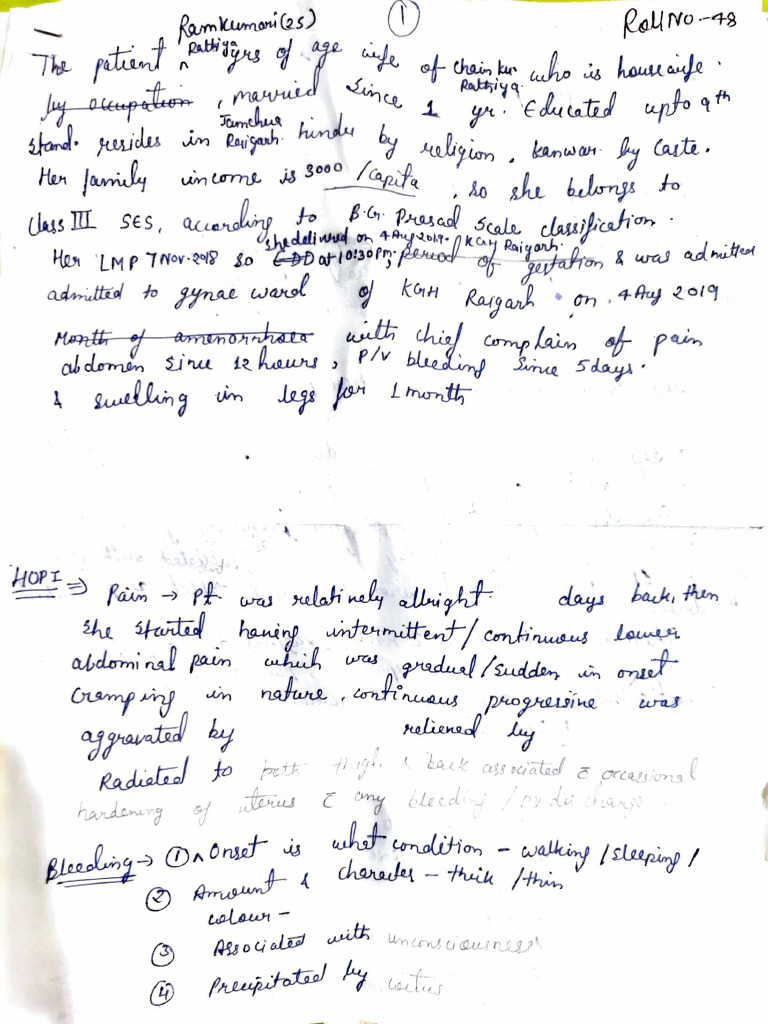 Ramkumari (25)
①
Roll No - 48
The patient ^ Rathiya yrs of age wife of Chain kr. Rathiya who is housewife.
by occupation, married since 1 yr. Educated upto 9th
stand. resides in Jamchua Raigarh. hindu by religion, kanwar by caste.
Her family income is 3000 /capita, so she belongs to
Class III SES, according to B.G. Prasad Scale classification.
she delivered on 4 Aug 2019. KGH Raigarh.
Her LMP 7 Nov. 2018 so EDD at 10:30 pm, period of gestation & was admitted
admitted to gynae ward of KGH Raigarh on 4 Aug 2019
Month of amenorrhoea with chief complain of pain
abdomen since 12 hours, P/V bleeding since 5 days.
& swelling in legs for 1 month
HOPI ⇒ Pain → Pt. was relatively allright days back, then
she started having intermittent/continuous lower
abdominal pain which was gradual/sudden in onset
cramping in nature. continuous progressive was
aggravated by relieved by
Radiated to both thigh & back associated c̄ occassional
hardening of uterus c̄ any bleeding / pv discharge.
Bleeding → ① ^ Onset is what condition - walking/sleeping/
② Amount & character - thick/thin
colour -
③ Associated with unconsciousness
④ Precipitated by coitus